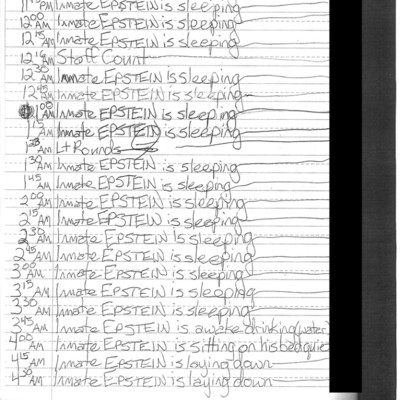 PM Inmate EPSTEIN is sleeping
12:00 AM Inmate EPSTEIN is sleeping
12:15 AM Inmate EPSTEIN is sleeping
12:16 AM Staff Count
12:30 AM Inmate EPSTEIN is sleeping
12:45 AM Inmate EPSTEIN is sleeping
1:00 AM Inmate EPSTEIN is sleeping
AM Inmate EPSTEIN is sleeping
AM Lt Rounds
1:30 AM Inmate EPSTEIN is sleeping
1:45 AM Inmate EPSTEIN is sleeping
2:00 AM Inmate EPSTEIN is sleeping
2:15 AM Inmate EPSTEIN is sleeping
2:30 AM Inmate EPSTEIN is sleeping
2:45 AM Inmate EPSTEIN is sleeping
3:00 AM Inmate EPSTEIN is sleeping
3:15 AM Inmate EPSTEIN is sleeping
3:30 AM Inmate EPSTEIN is sleeping
3:45 AM Inmate EPSTEIN is awake drinking (water)
4:00 AM Inmate EPSTEIN is sitting on his bed quie
4:15 AM Inmate EPSTEIN is laying down
4:30 AM Inmate EPSTEIN is laying down